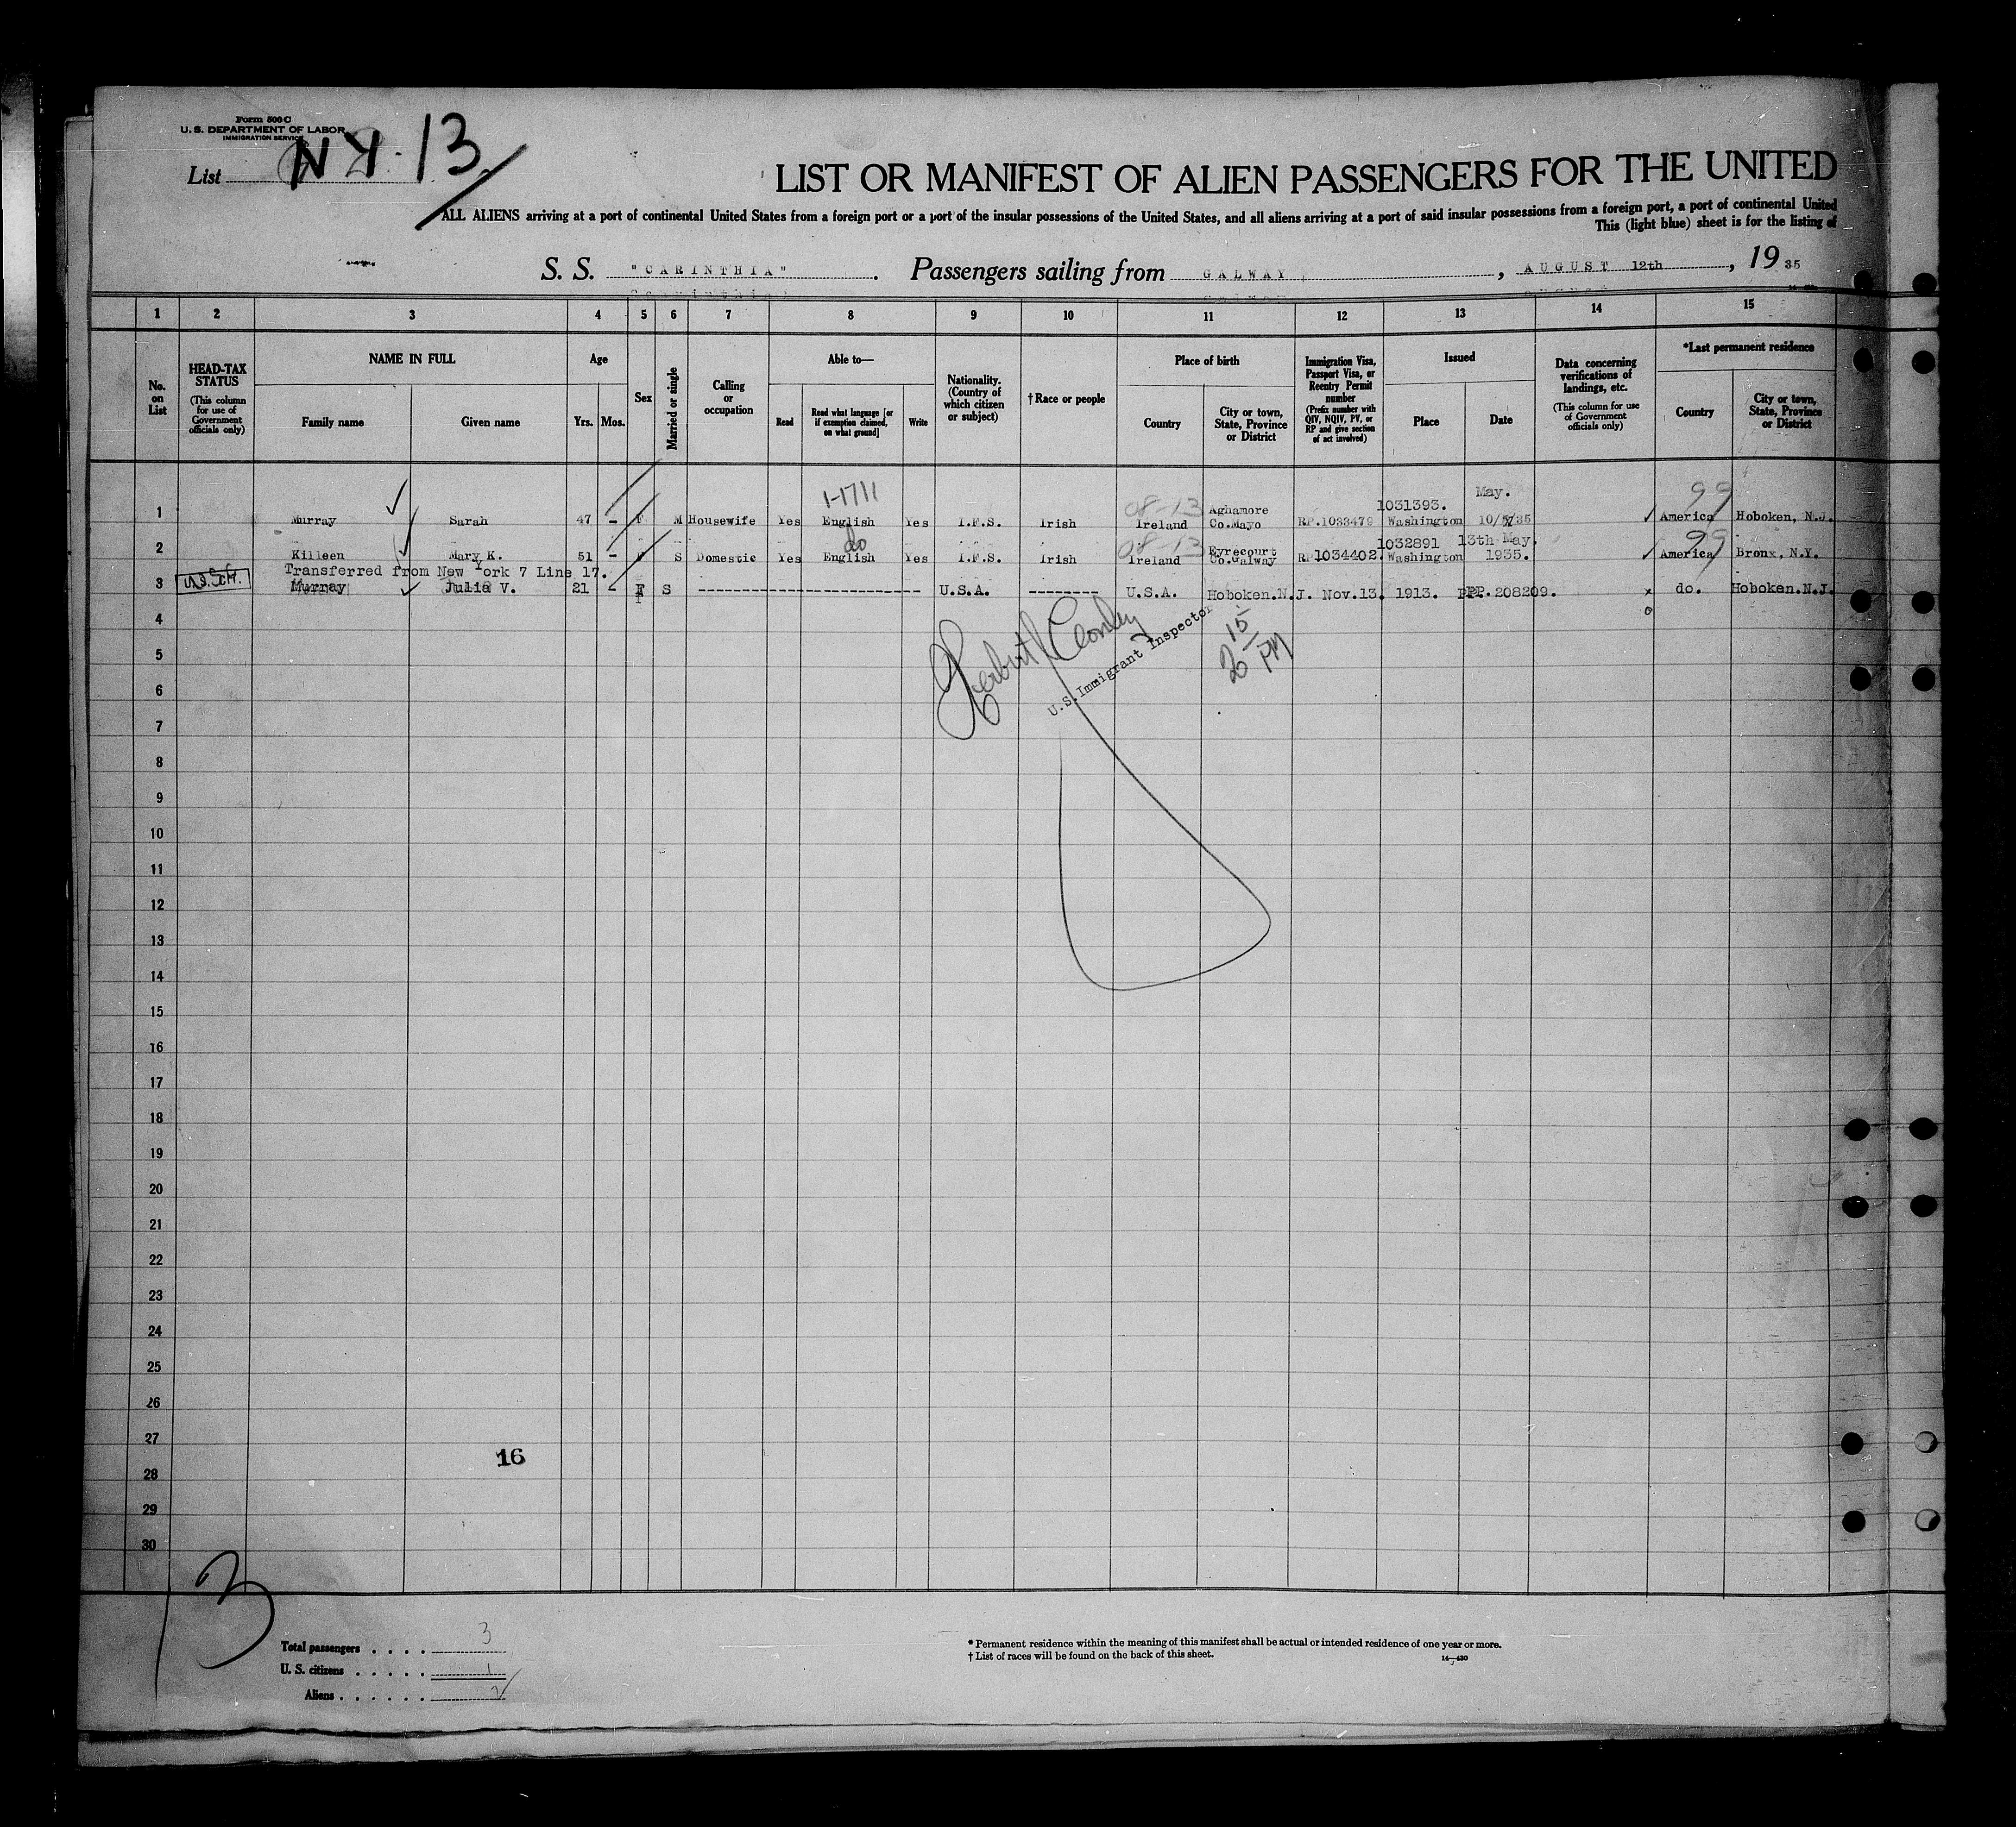 Form 500 C
U. S. DEPARTMENT OF LABOR
IMMIGRATION SERVICE
List NY. 13
LIST OR MANIFEST OF ALIEN PASSENGERS FOR THE UNITED
ALL ALIENS arriving at a port of continental United States from a foreign port or a port of the insular possessions of the United States, and all aliens arriving at a port of said insular possessions from a foreign port, a port of continental United
This (light blue) sheet is for the listing of
S. S. "CARINTHIA". Passengers sailing from GALWAY, AUGUST 12th, 19 35
1 2 3 4 5 6 7 8 9 10 11 12 13 14 15
No. on List
HEAD-TAX STATUS (This column for use of Government officials only)
NAME IN FULL
Family name
Given name
Age
Yrs.
Mos.
Sex
Married or single
Calling or occupation
Able to—
Read
Read what language [or if exemption claimed, on what ground]
Write
Nationality. (Country of which citizen or subject)
†Race or people
Place of birth
Country
City or town, State, Province or District
Immigration Visa, Passport Visa, or Reentry Permit number (Prefix number with QIV, NQIV, PV, or RP and give section of act involved)
Issued
Place
Date
Data concerning verifications of landings, etc. (This column for use of Government officials only)
*Last permanent residence
Country
City or town, State, Province or District
1-1711 08-13 Aghamore 1031393. May. 99
1 Murray Sarah 47 - F M Housewife Yes English Yes I.F.S. Irish Ireland Co.Mayo RP.1033479 Washington 10/5/35 America Hoboken, N.J.
do 08-13 Eyrecourt 1032891 13th May. 99
2 Killeen Mary K. 51 - F S Domestic Yes English Yes I.F.S. Irish Ireland Co.Galway RP1034402. Washington 1935. America Bronx, N.Y.
Transferred from New York 7 Line 17.
3 Murray Julia V. 21 - F S U.S.A. U.S.A. Hoboken.N.J. Nov.13. 1913. PP.208209. x do. Hoboken.N.J.
4
5
6
U.S. Immigrant Inspector
7
8
9
10
11
12
13
14
15
16
17
18
19
20
21
22
23
24
25
26
27
16
28
29
30
3
Total passengers . . . . 3
U. S. citizens . . . . . 1
Aliens . . . . . . 2
* Permanent residence within the meaning of this manifest shall be actual or intended residence of one year or more.
† List of races will be found on the back of this sheet.
14—430